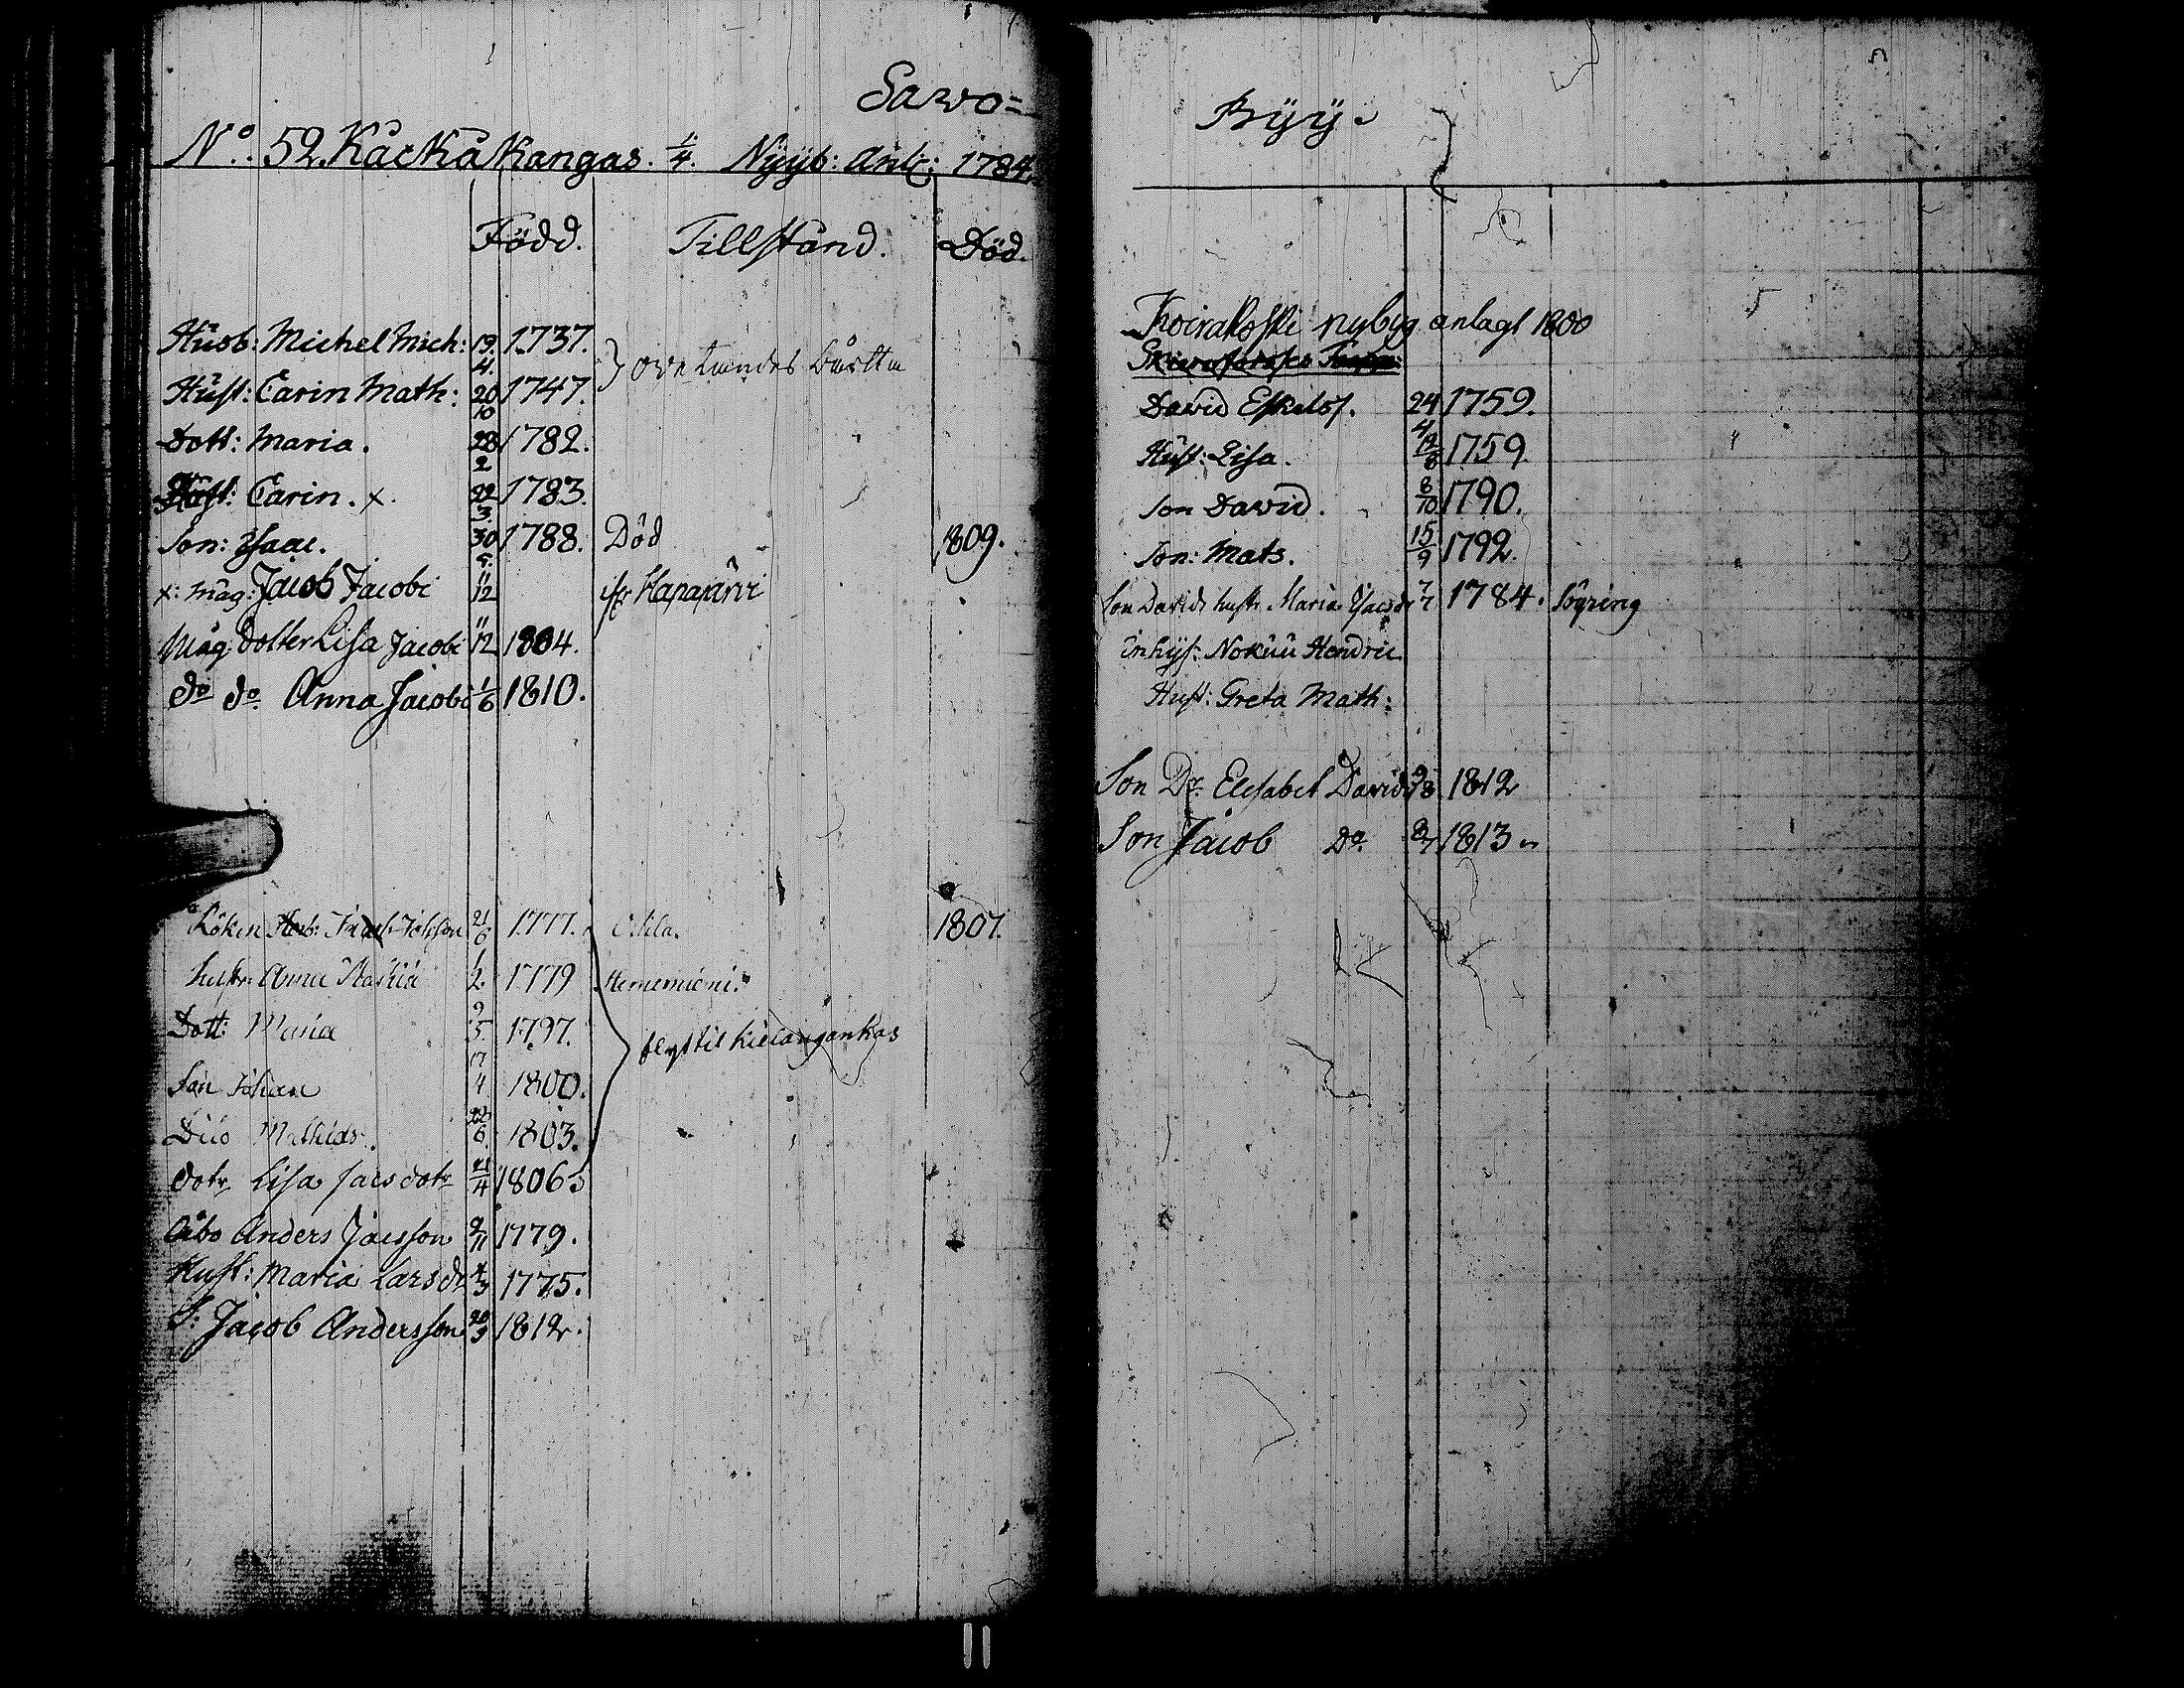 Sawo=
N:o 52. Kackåkangas. 1/4. Nÿÿb: Anl: 1784.
Född. Tillstånd. Död.
Husb: Michel Mich: 19/4. 1737.
Hust: Carin Math: 20/10 1747.
Dott: Maria. 28/2 1782.
Carin. x 22/3. 1783.
Son: Isaac. 30/5. 1788. Död 1809.
x: måg: Jacob Jacobi 11/12
Måg Dotter Lisa Jacobi 11/12 1804.
do do. Anna Jacobi 1/6 1810.
21/6 1777. 1807.
hustr: Anna 1/2. 1779
Dott: Maria 9/5. 1797. flyt til
Son Johan 17/4 1800.
Dito Mathias. 6. 1803.
dotr Lisa Jacsdotr 21/4 1806
Åbo Anders Jacsson 9/11 1779.
Hust: Maria Larsdr 4/3 1775.
S: Jacob Andersson 20/3 1812.
Bÿÿ.
Koirakoski nybyg anlagt 1800
David Eskelss. 24/4 1759.
Hust: Lisa. 12/8 1759.
Son David. 8/10 1790.
Son: Mats. 15/9 1792.
Son Davids hustr Maria Isacsdr 7/7 1784. Soÿring
Inhÿs: Nokuu Hendric
Hust: Greta Math:
Son Dr. Elisabet Davids 1812
Son Jacob Do. 8/7 1813
11